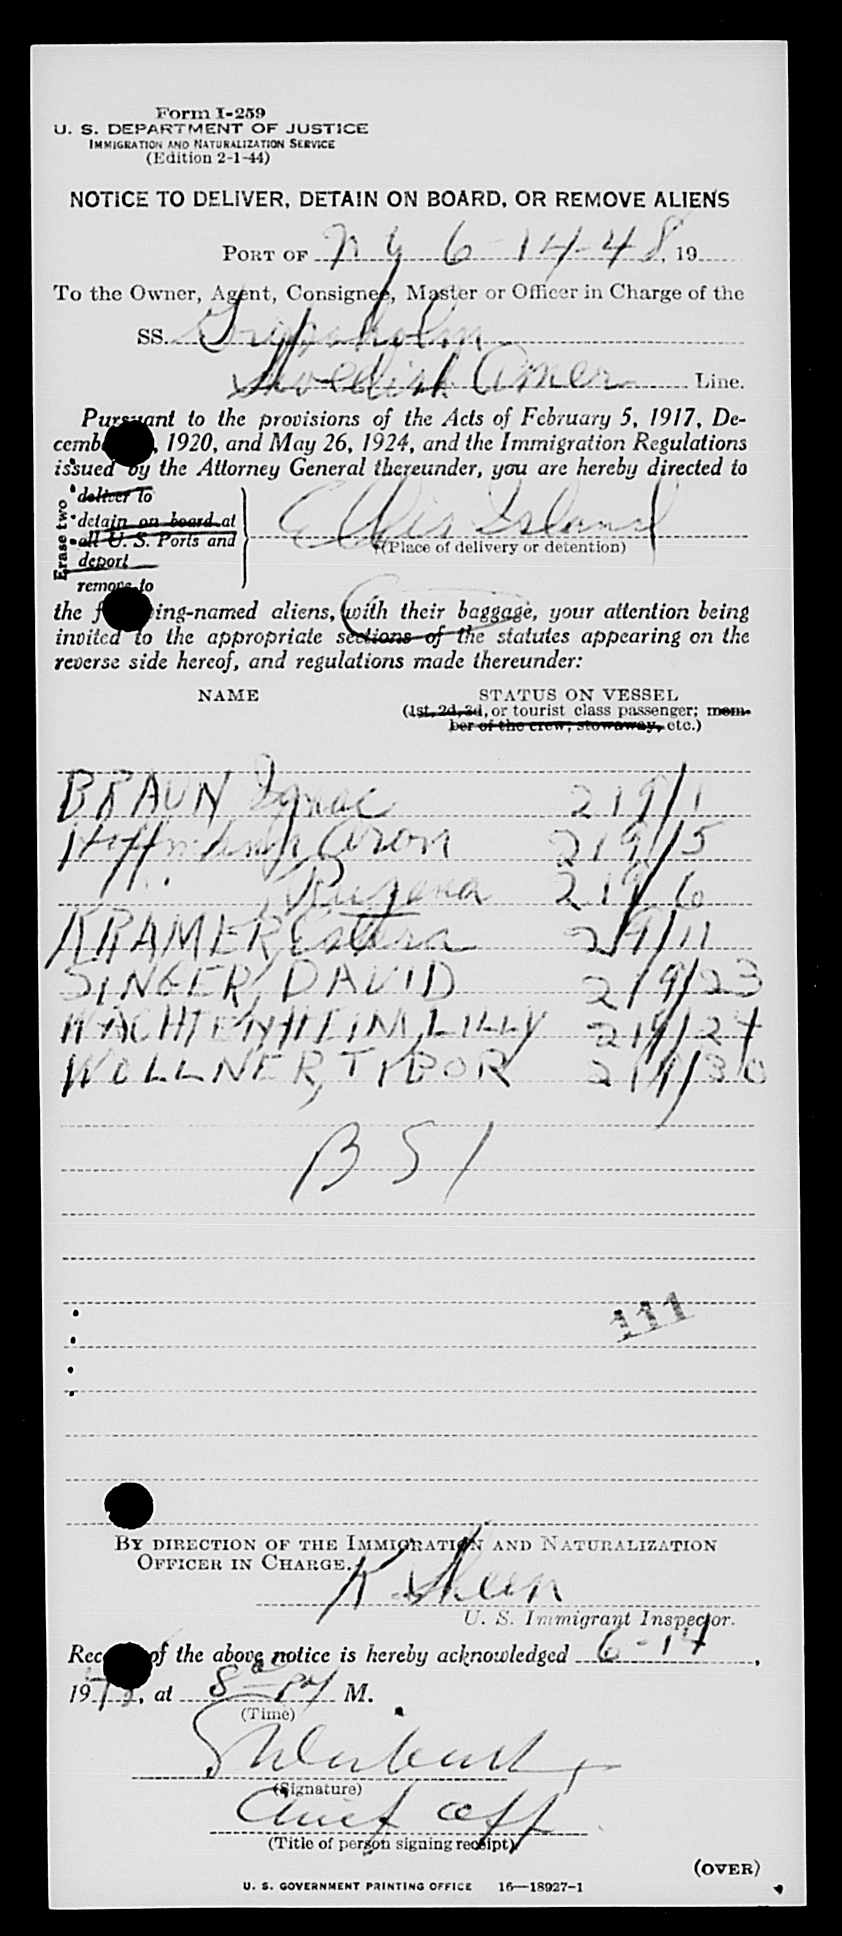 Form I-259
U. S. DEPARTMENT OF JUSTICE
IMMIGRATION AND NATURALIZATION SERVICE
(Edition 2-1-44)
NOTICE TO DELIVER, DETAIN ON BOARD, OR REMOVE ALIENS
PORT OF N Y 6-14-48, 19
To the Owner, Agent, Consignee, Master or Officer in Charge of the
SS. Gripsholm
Swedish Amer Line.
Pursuant to the provisions of the Acts of February 5, 1917, De-
cemb , 1920, and May 26, 1924, and the Immigration Regulations
issued by the Attorney General thereunder, you are hereby directed to
Erase two
deliver to
detain on board at
all U. S. Ports and
deport
remove to
Ellis Island
(Place of delivery or detention)
the f ing-named aliens, with their baggage, your attention being
invited to the appropriate sections of the statutes appearing on the
reverse side hereof, and regulations made thereunder:
NAME STATUS ON VESSEL
(1st, 2d, 3d, or tourist class passenger; mem-
ber of the crew, stowaway, etc.)
BRAUN Ignac 219/1
Hoffmann, Aron 219/5
" , Ruzena 219/6
KRAMER, Estera 219/11
SINGER, DAVID 219/23
WACHTENHEIM, LILLY 219/27
WOLLNER, TIBOR 219/30
B S I
111
BY DIRECTION OF THE IMMIGRATION AND NATURALIZATION
OFFICER IN CHARGE.
K. Skeen
U. S. Immigrant Inspector.
Rec of the above notice is hereby acknowledged 6-14,
1948, at 8 PM M.
(Time)
(Signature)
Chief Off
(Title of person signing receipt)
(OVER)
U. S. GOVERNMENT PRINTING OFFICE 16—18927-1